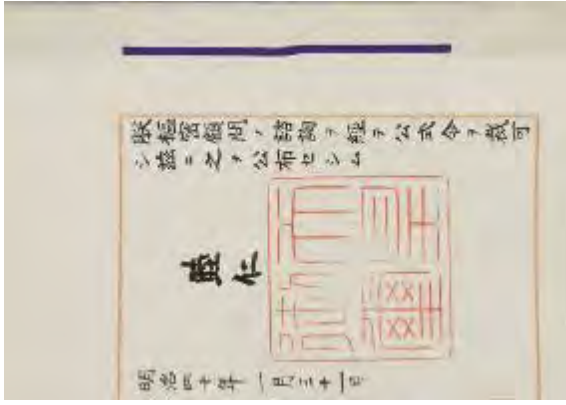 朕樞密顧問ノ諮詢ヲ經テ公式令ヲ裁可
シ茲ニ之ヲ公布セシム
睦仁
天皇
御璽
明治四十年一月三十一日